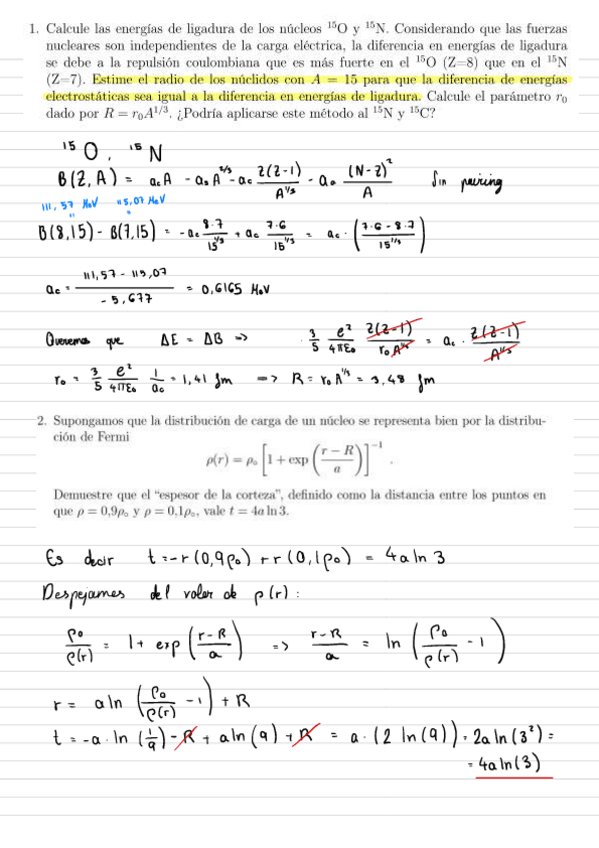 1. Calcule las energías de ligadura de los núcleos ¹⁵O y ¹⁵N. Considerando que las fuerzas
nucleares son independientes de la carga eléctrica, la diferencia en energías de ligadura
se debe a la repulsión coulombiana que es más fuerte en el ¹⁵O (Z=8) que en el ¹⁵N
(Z=7). Estime el radio de los núclidos con A = 15 para que la diferencia de energías
electrostáticas sea igual a la diferencia en energías de ligadura. Calcule el parámetro r₀
dado por R = r₀A^{1/3}. ¿Podría aplicarse este método al ¹⁵N y ¹⁵C?
¹⁵O, ¹⁵N
B(Z,A) = aₑA - aₛA^{2/3} - a_c Z(Z-1)/A^{1/3} - aₐ (N-Z)²/A Sin pairing
111,57 MeV 115,07 MeV
B(8,15) - B(7,15) = -a_c 8·7/15^{1/3} + a_c 7·6/15^{1/3} = a_c · (7·6 - 8·7 / 15^{1/3})
a_c = 111,57 - 115,07 / -5,677 = 0,6165 MeV
Queremos que ΔE = ΔB => 3/5 e²/4πε₀ Z(Z-1)/r₀A^{1/3} = a_c · Z(Z-1)/A^{1/3}
r₀ = 3/5 e²/4πε₀ 1/a_c = 1,41 fm => R = r₀A^{1/3} = 3,48 fm
2. Supongamos que la distribución de carga de un núcleo se representa bien por la distribu-
ción de Fermi
ρ(r) = ρ₀ [1 + exp((r - R)/a)]^{-1} .
Demuestre que el “espesor de la corteza”, definido como la distancia entre los puntos en
que ρ = 0,9ρ₀ y ρ = 0,1ρ₀, vale t = 4a ln 3.
Es decir t = -r(0,9ρ₀) + r(0,1ρ₀) = 4a ln 3
Despejamos del valor de ρ(r):
ρ₀/ρ(r) = 1 + exp((r-R)/a) => (r-R)/a = ln(ρ₀/ρ(r) - 1)
r = a ln(ρ₀/ρ(r) - 1) + R
t = -a · ln(1/9) - R + a ln(9) + R = a · (2 ln(9)) = 2a ln(3²) =
= 4a ln(3)